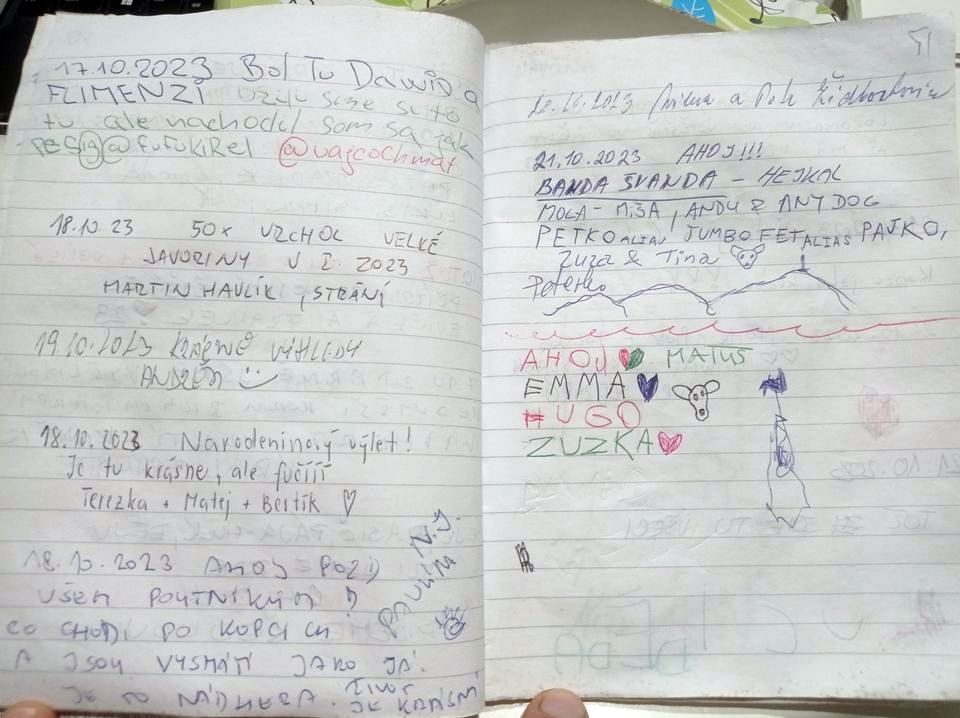 17.10.2023 Bol Tu Dawid a
FLIMENZÍ
tu ale nachodil som sa
@fufukiRel @vajcoChmat
18.10.23 50x VZCHOL VELKÉ
JAVORINY V I. 2023
MARTIN HAVLÍK, STRÁNÍ
19.10.2023 KRÁSNÉ VÍHLEDY
18.10.2023 Narodeninový výlet!
Je tu krásne, ale fučííí
Terezka + Matej + Bertík ♡
18.10.2023 AHOJ
VŠEM POUTNÍKŮM
CO CHODÍ PO KOPCÍCH
A JSOU VYSMÁTÍ JAKO JÁ.
JE TO NÁDHERA. ŽIVOT JE KRÁSNÝ
PAVLÍNA N.J.
51
20.10.2023 a
21.10.2023 AHOJ!!!
BANDA ŠVANDA - HEJKAL
MOLA - MIŠA, ANDY & ANY DOG
PETKO ALIAS JUMBO FET ALIAS PAJKO,
Zuza & Tina
Peterko
AHOJ MATUS
EMMA
HUGO
ZUZKA